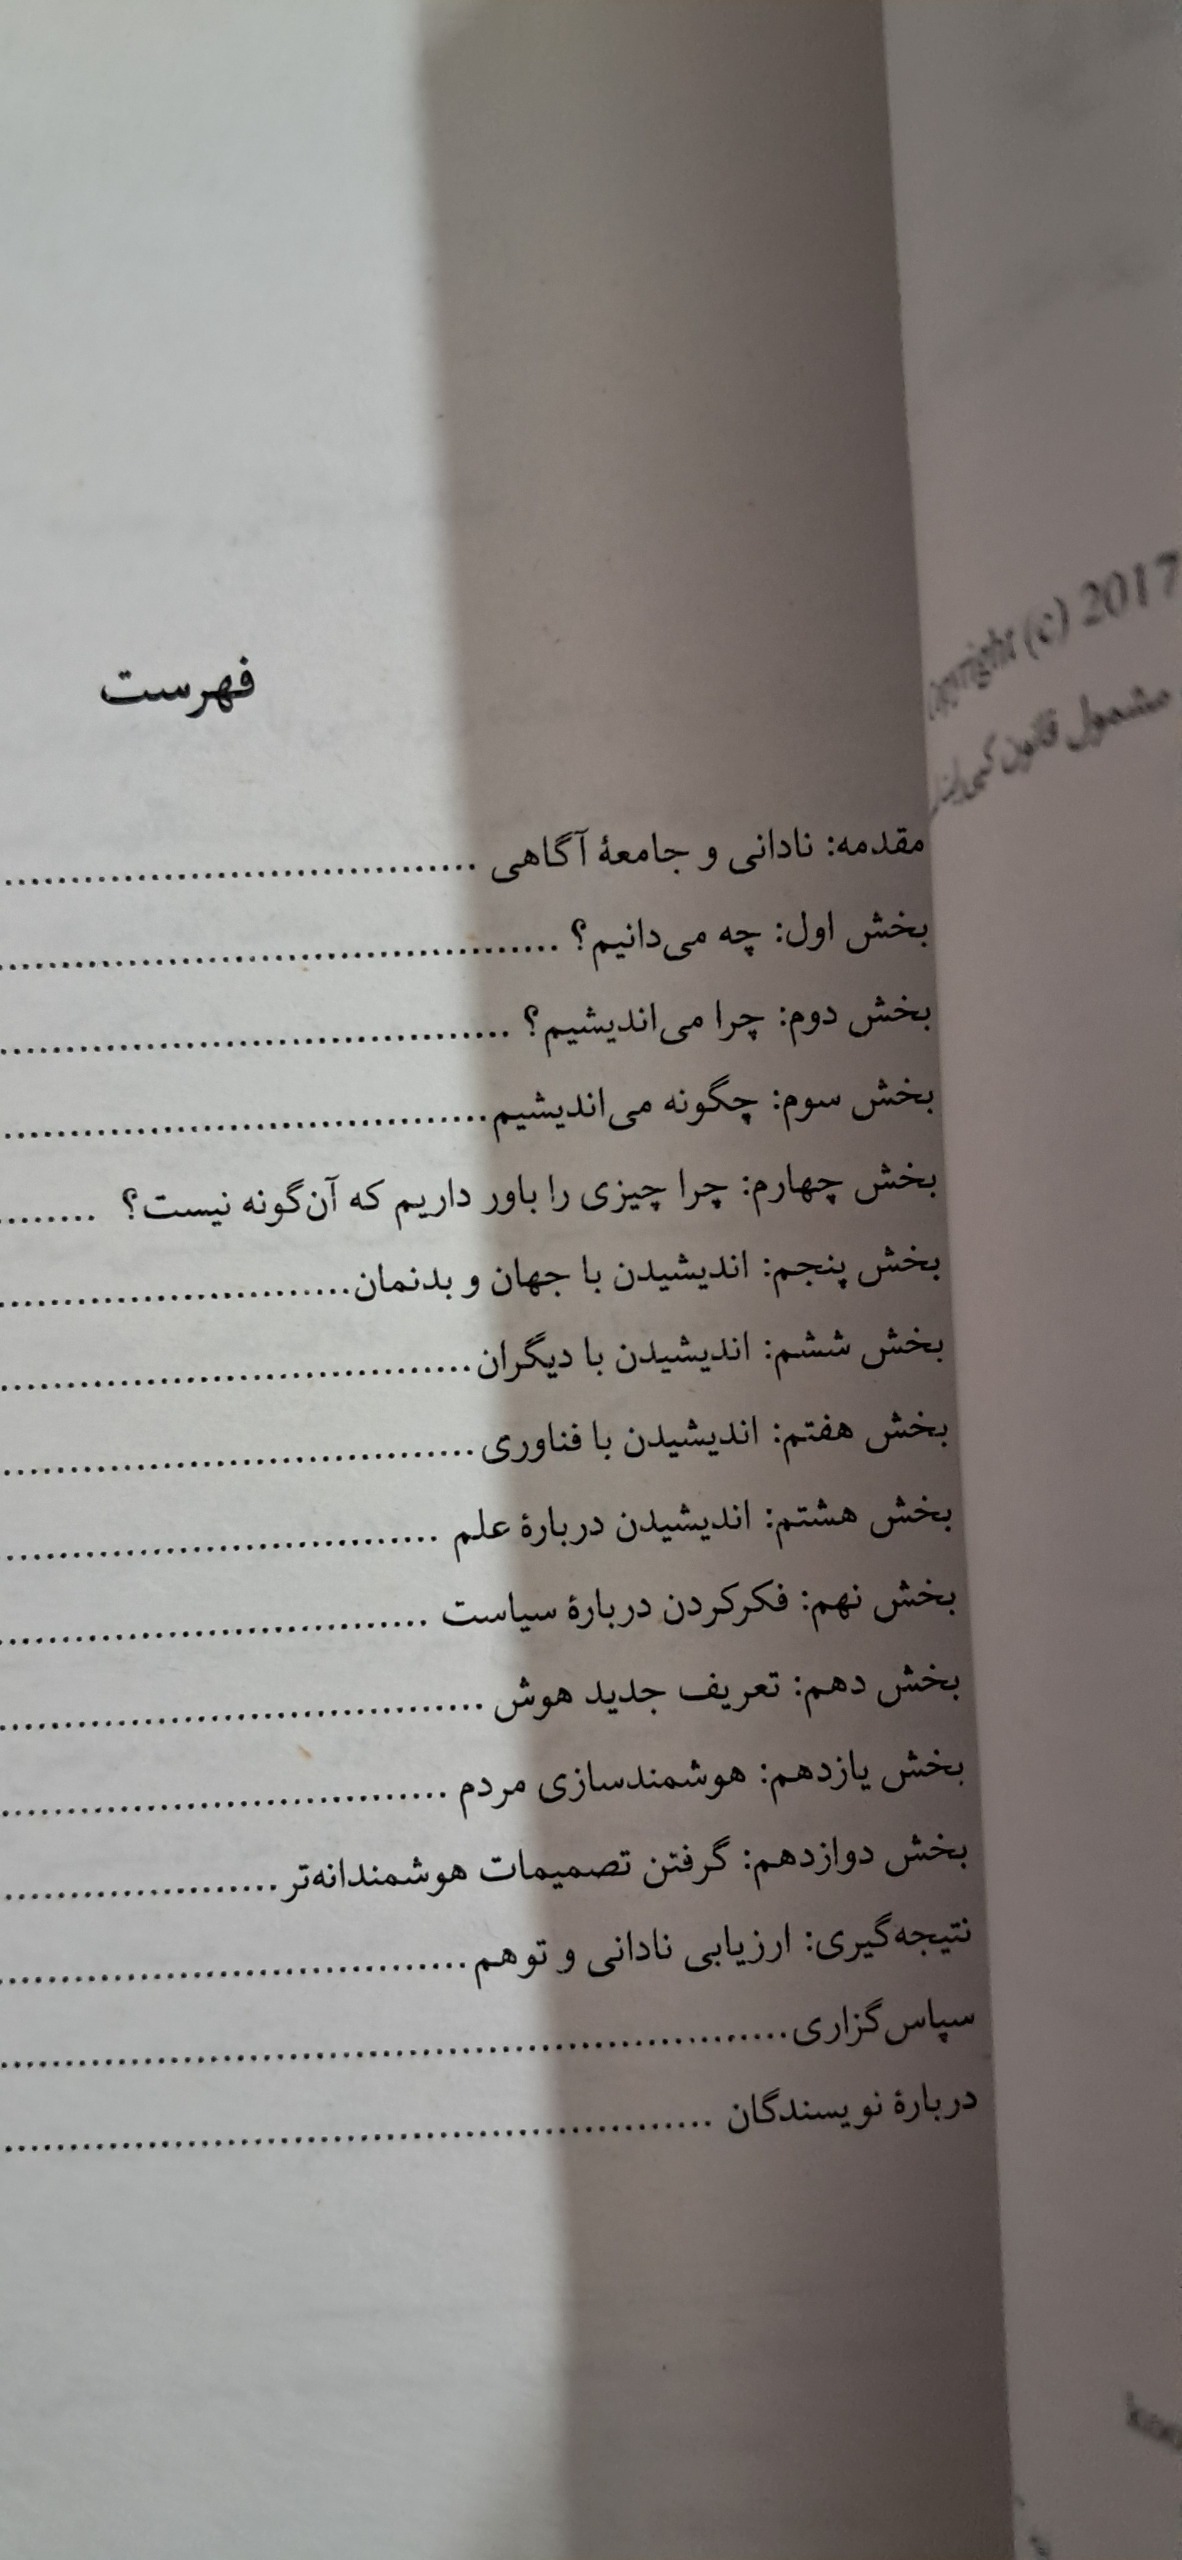 2017 (c)
مشمول قانون کپی‌رایت
فهرست
مقدمه: نادانی و جامعۀ آگاهی ........................................
بخش اول: چه می‌دانیم؟ ........................................
بخش دوم: چرا می‌اندیشیم؟ ........................................
بخش سوم: چگونه می‌اندیشیم........................................
بخش چهارم: چرا چیزی را باور داریم که آن‌گونه نیست؟ ........
بخش پنجم: اندیشیدن با جهان و بدنمان..............................
بخش ششم: اندیشیدن با دیگران........................................
بخش هفتم: اندیشیدن با فناوری........................................
بخش هشتم: اندیشیدن دربارۀ علم ....................................
بخش نهم: فکرکردن دربارۀ سیاست ....................................
بخش دهم: تعریف جدید هوش ........................................
بخش یازدهم: هوشمندسازی مردم ....................................
بخش دوازدهم: گرفتن تصمیمات هوشمندانه‌تر.......................
نتیجه‌گیری: ارزیابی نادانی و توهم........................................
سپاس‌گزاری............................................................
دربارۀ نویسندگان ......................................................